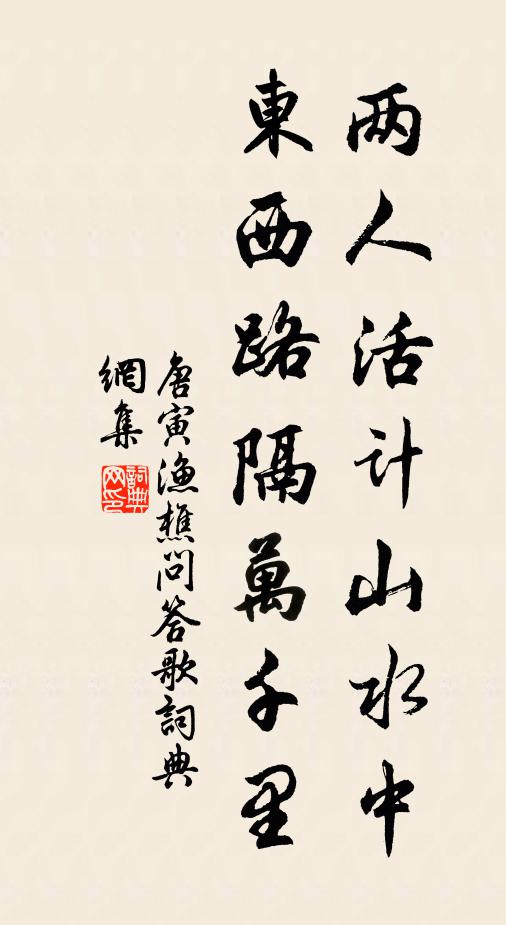 两人活计山水中
東西路隔萬千里
唐寅漁樵問答歌詞典
網集
詞典
网印